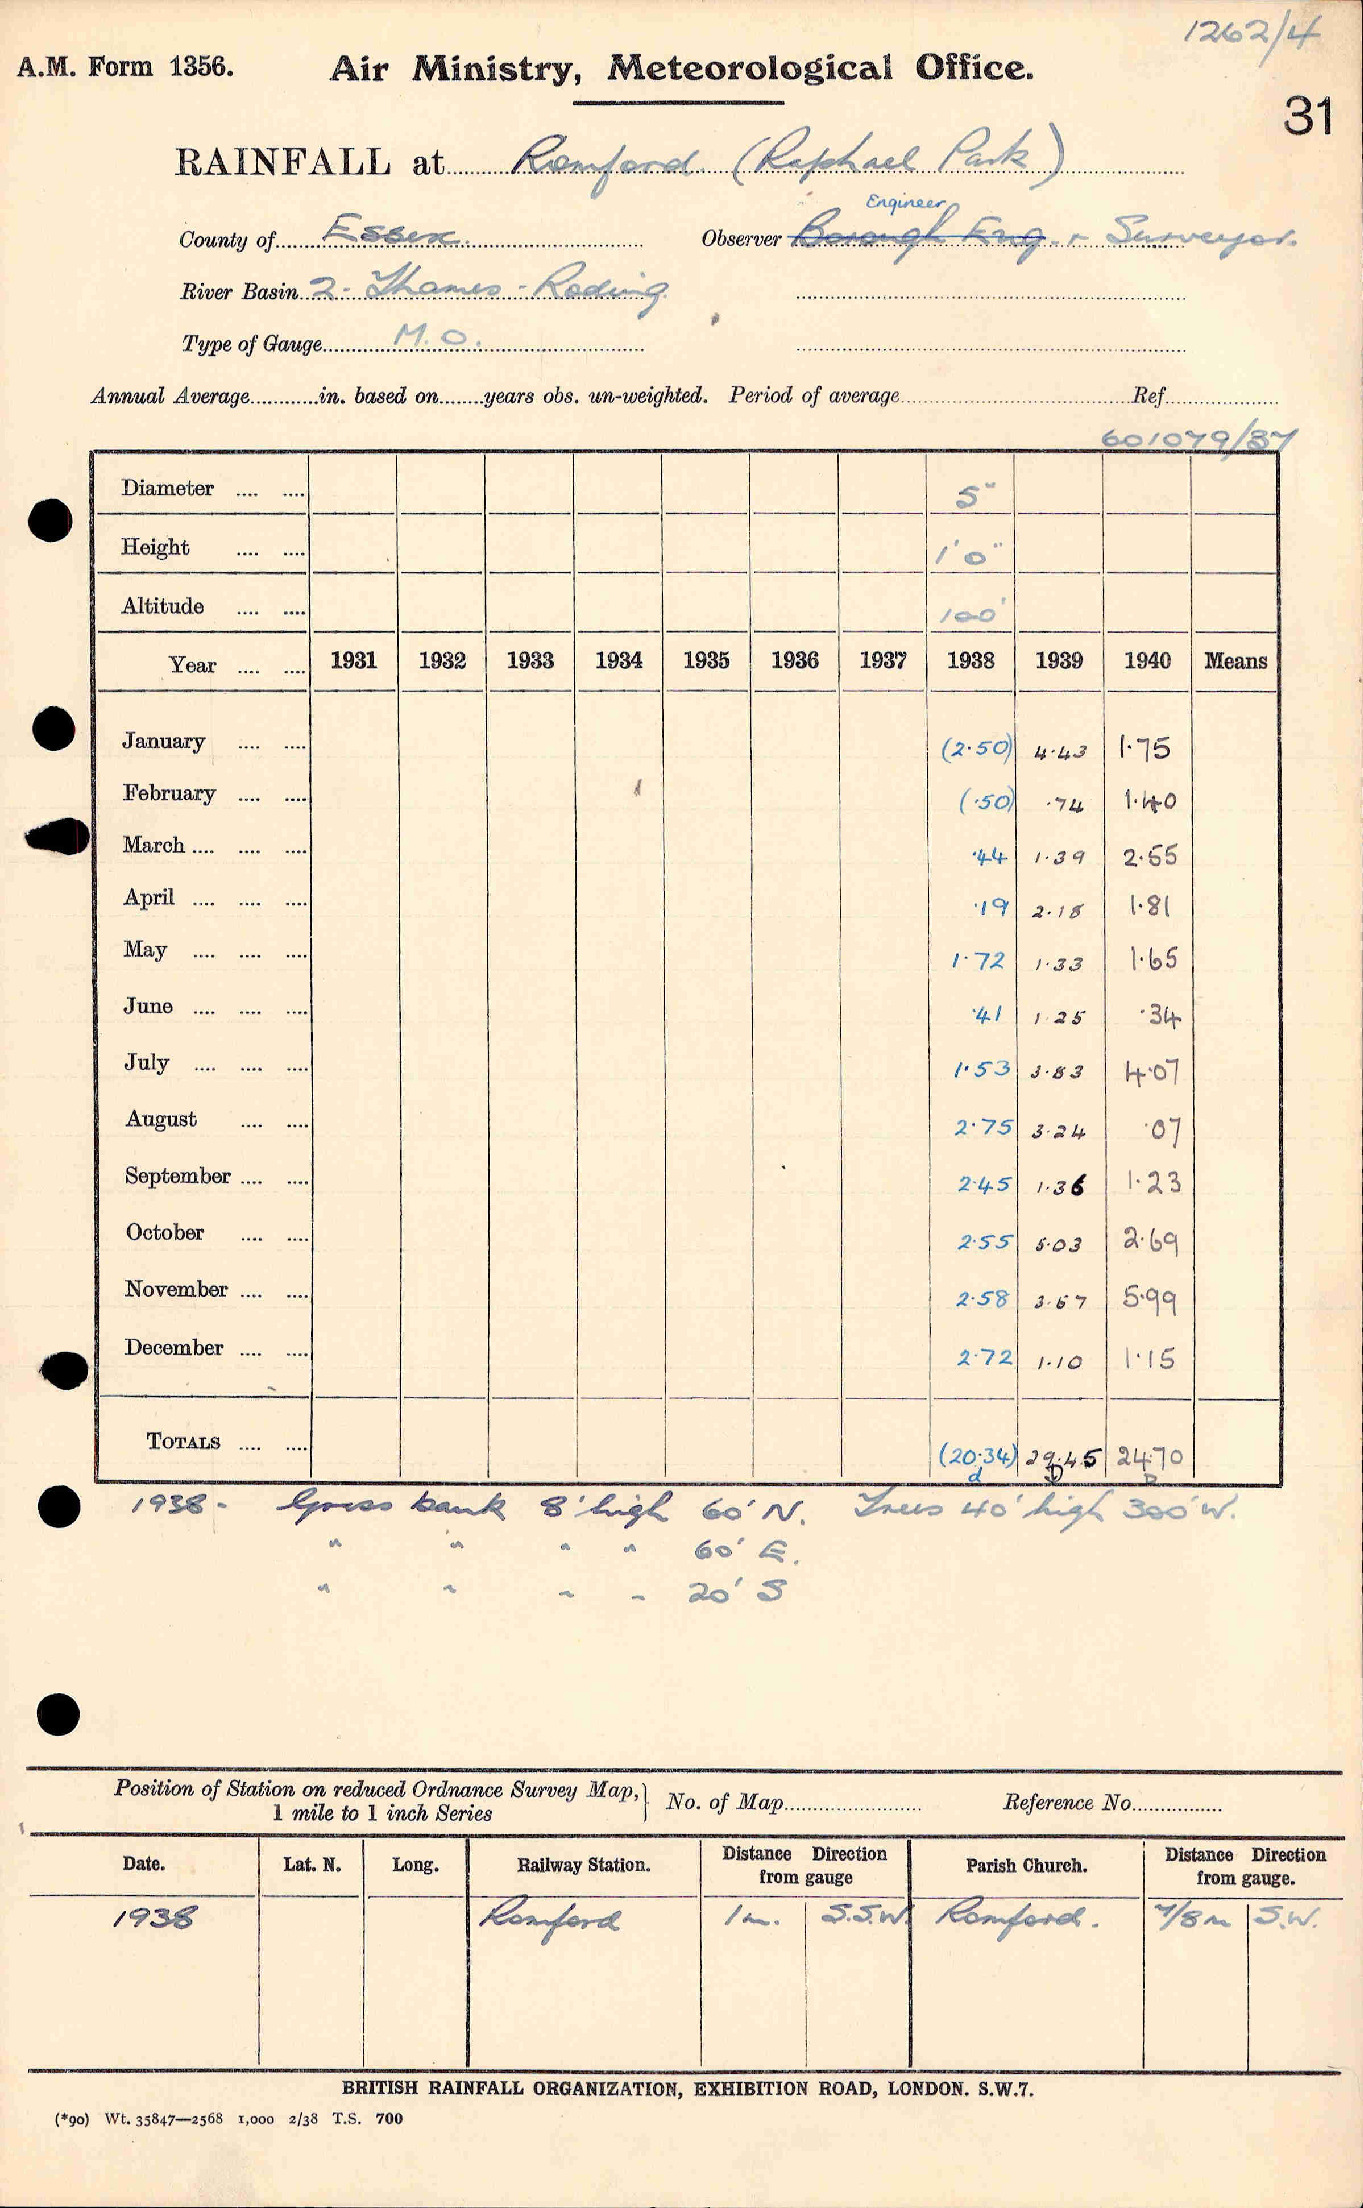 1262/4
A.M. Form 1356. Air Ministry, Meteorological Office.
31
RAINFALL at Romford (Raphael Park)
Engineer
County of Essex. Observer Borough Eng. + Surveyor.
River Basin 2 - Thames - Roding
Type of Gauge M.O.
Annual Average............in. based on.......years obs. un-weighted. Period of average.............Ref.............
601079/37
Diameter .... .... 5"
Height .... .... 1'0"
Altitude .... .... 100'
Year .... .... 1931 1932 1933 1934 1935 1936 1937 1938 1939 1940 Means
January .... .... (2·50) 4·43 1·75
February .... .... (·50) ·74 1·40
March .... .... .... ·44 1·39 2·55
April .... .... .... ·19 2·18 1·81
May .... .... .... 1·72 1·33 1·65
June .... .... .... ·41 1·25 ·34
July .... .... .... 1·53 3·83 4·07
August .... .... 2·75 3·24 ·07
September .... .... 2·45 1·36 1·23
October .... .... 2·55 5·03 2·69
November .... .... 2·58 3·57 5·99
December .... .... 2·72 1·10 1·15
TOTALS .... .... (20·34) 29·45 24·70
d D D
1938 - Grass bank 8' high 60' N. Trees 40' high 300' W.
" " " " 60' E.
" " " " 20' S
Position of Station on reduced Ordnance Survey Map, } No. of Map........................ Reference No................
1 mile to 1 inch Series
Date. Lat. N. Long. Railway Station. Distance Direction from gauge Parish Church. Distance Direction from gauge.
1938 Romford 1 m. S.S.W. Romford. 7/8 m S.W.
BRITISH RAINFALL ORGANIZATION, EXHIBITION ROAD, LONDON. S.W.7.
(*90) Wt. 35847—2568 1,000 2/38 T.S. 700